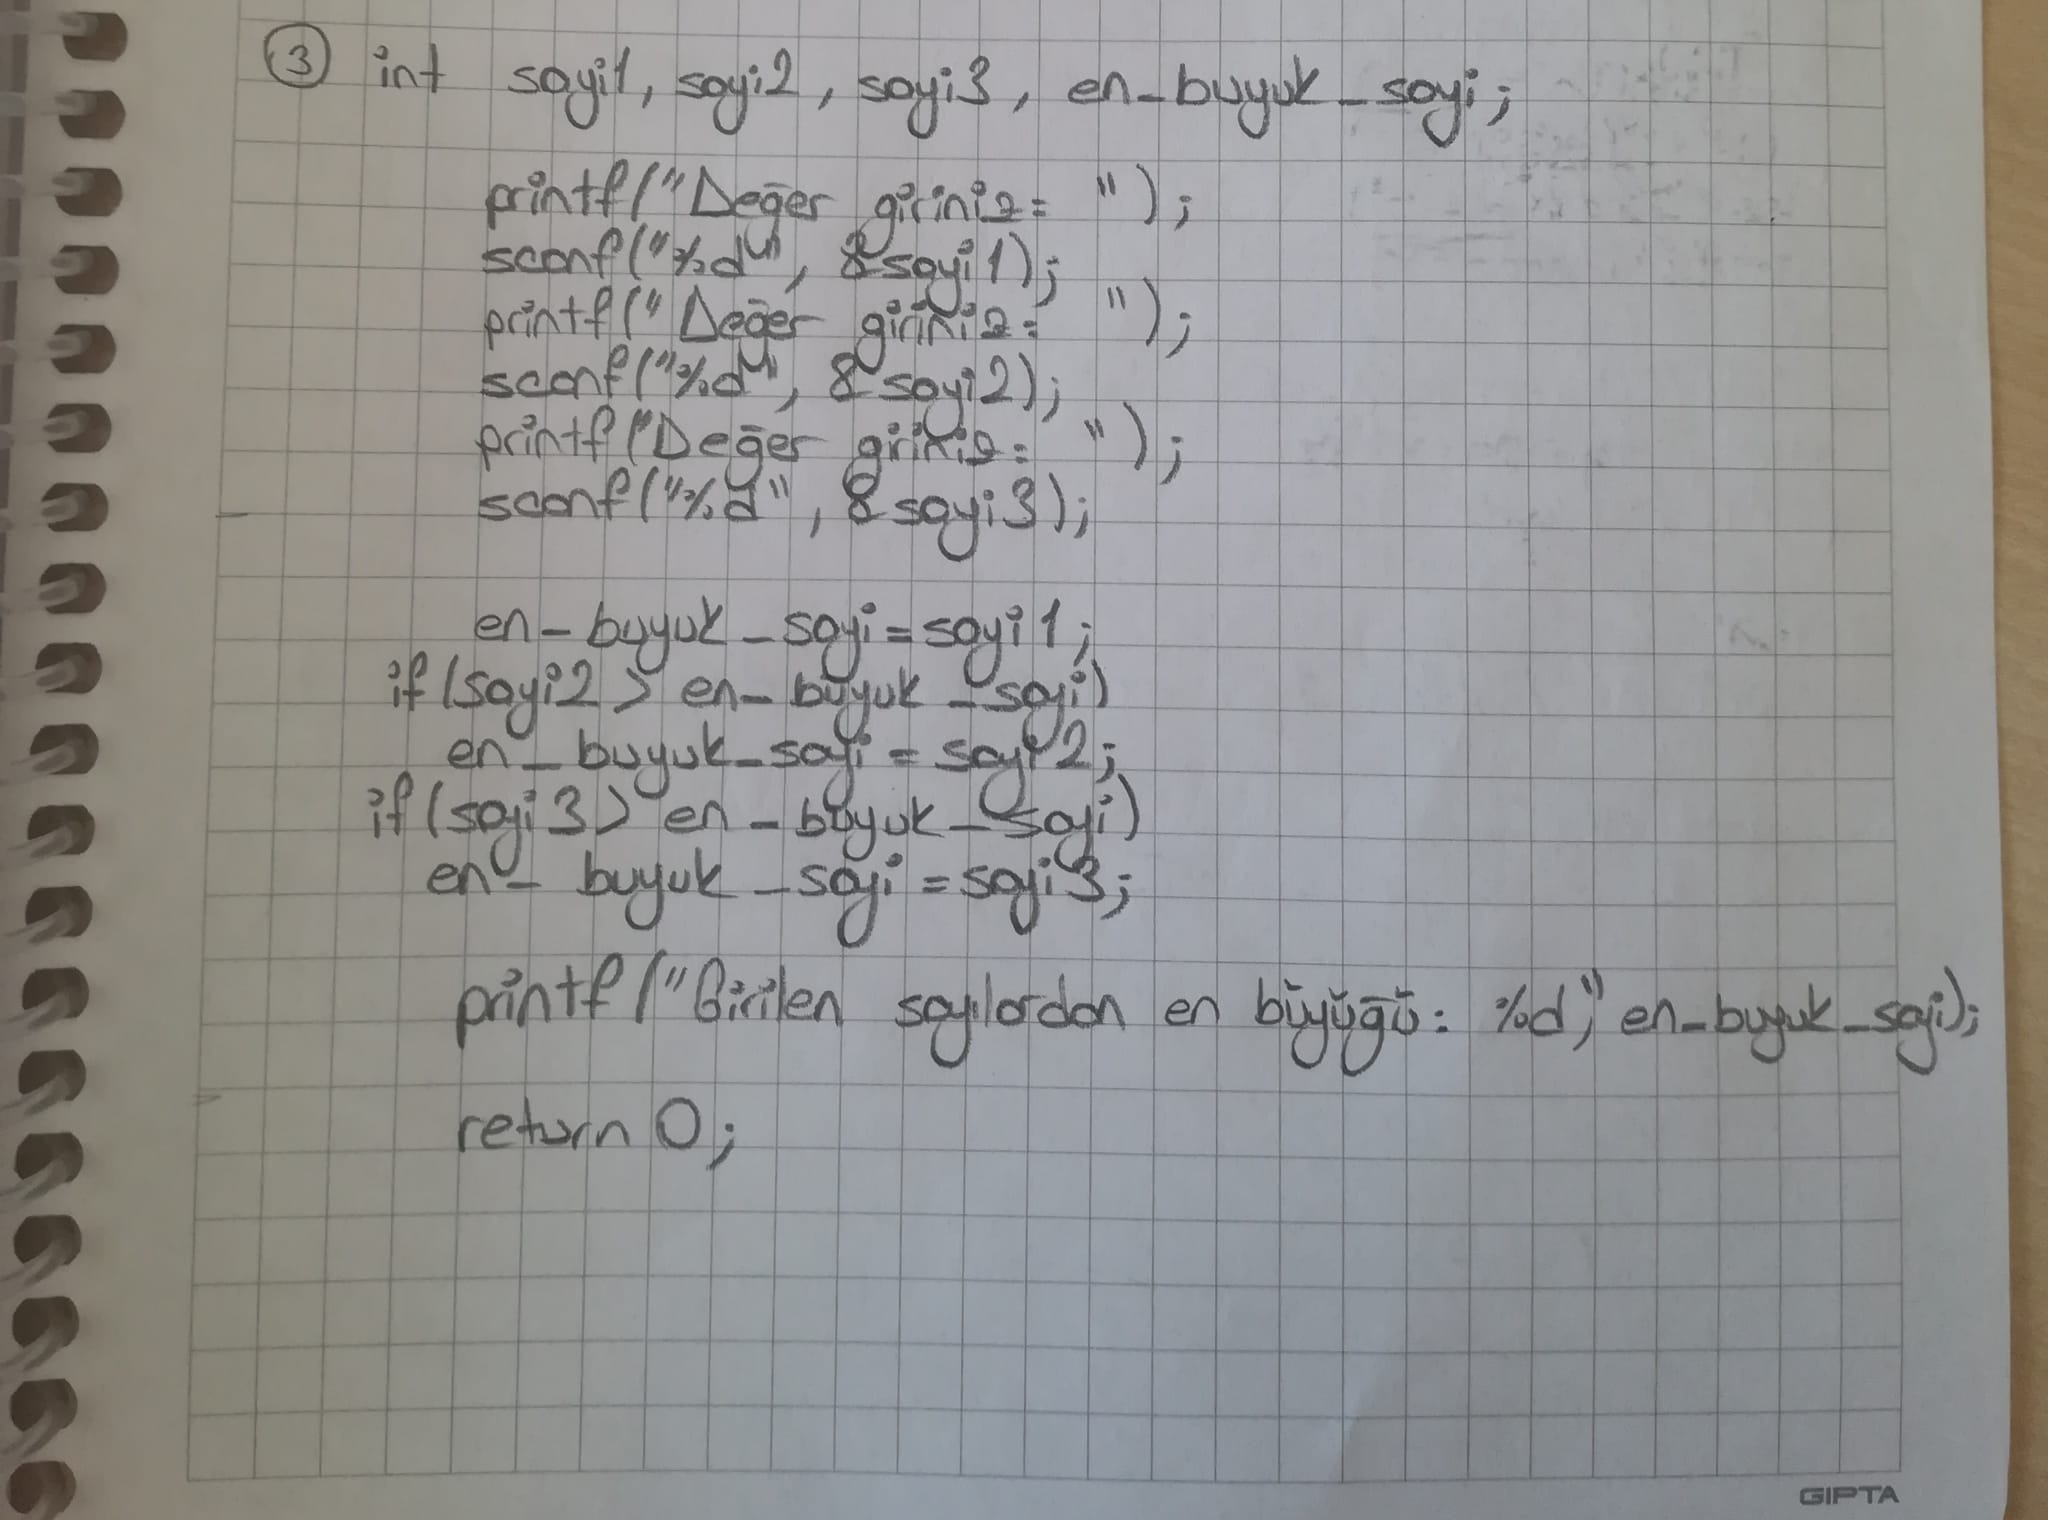 ③ int sayi1, sayi2, sayi3, en_buyuk_sayi;
printf("Değer giriniz= ");
scanf("%d", &sayi1);
printf("Değer giriniz= ");
scanf("%d", &sayi2);
printf("Değer giriniz= ");
scanf("%d", &sayi3);
en_buyuk_sayi=sayi1;
if(sayi2> en_buyuk_sayi)
en_buyuk_sayi = sayi2;
if(sayi3> en_buyuk_sayi)
en_buyuk_sayi = sayi3;
printf("Girilen sayılardan en büyüğü: %d," en_buyuk_sayi);
return 0;
GIPTA